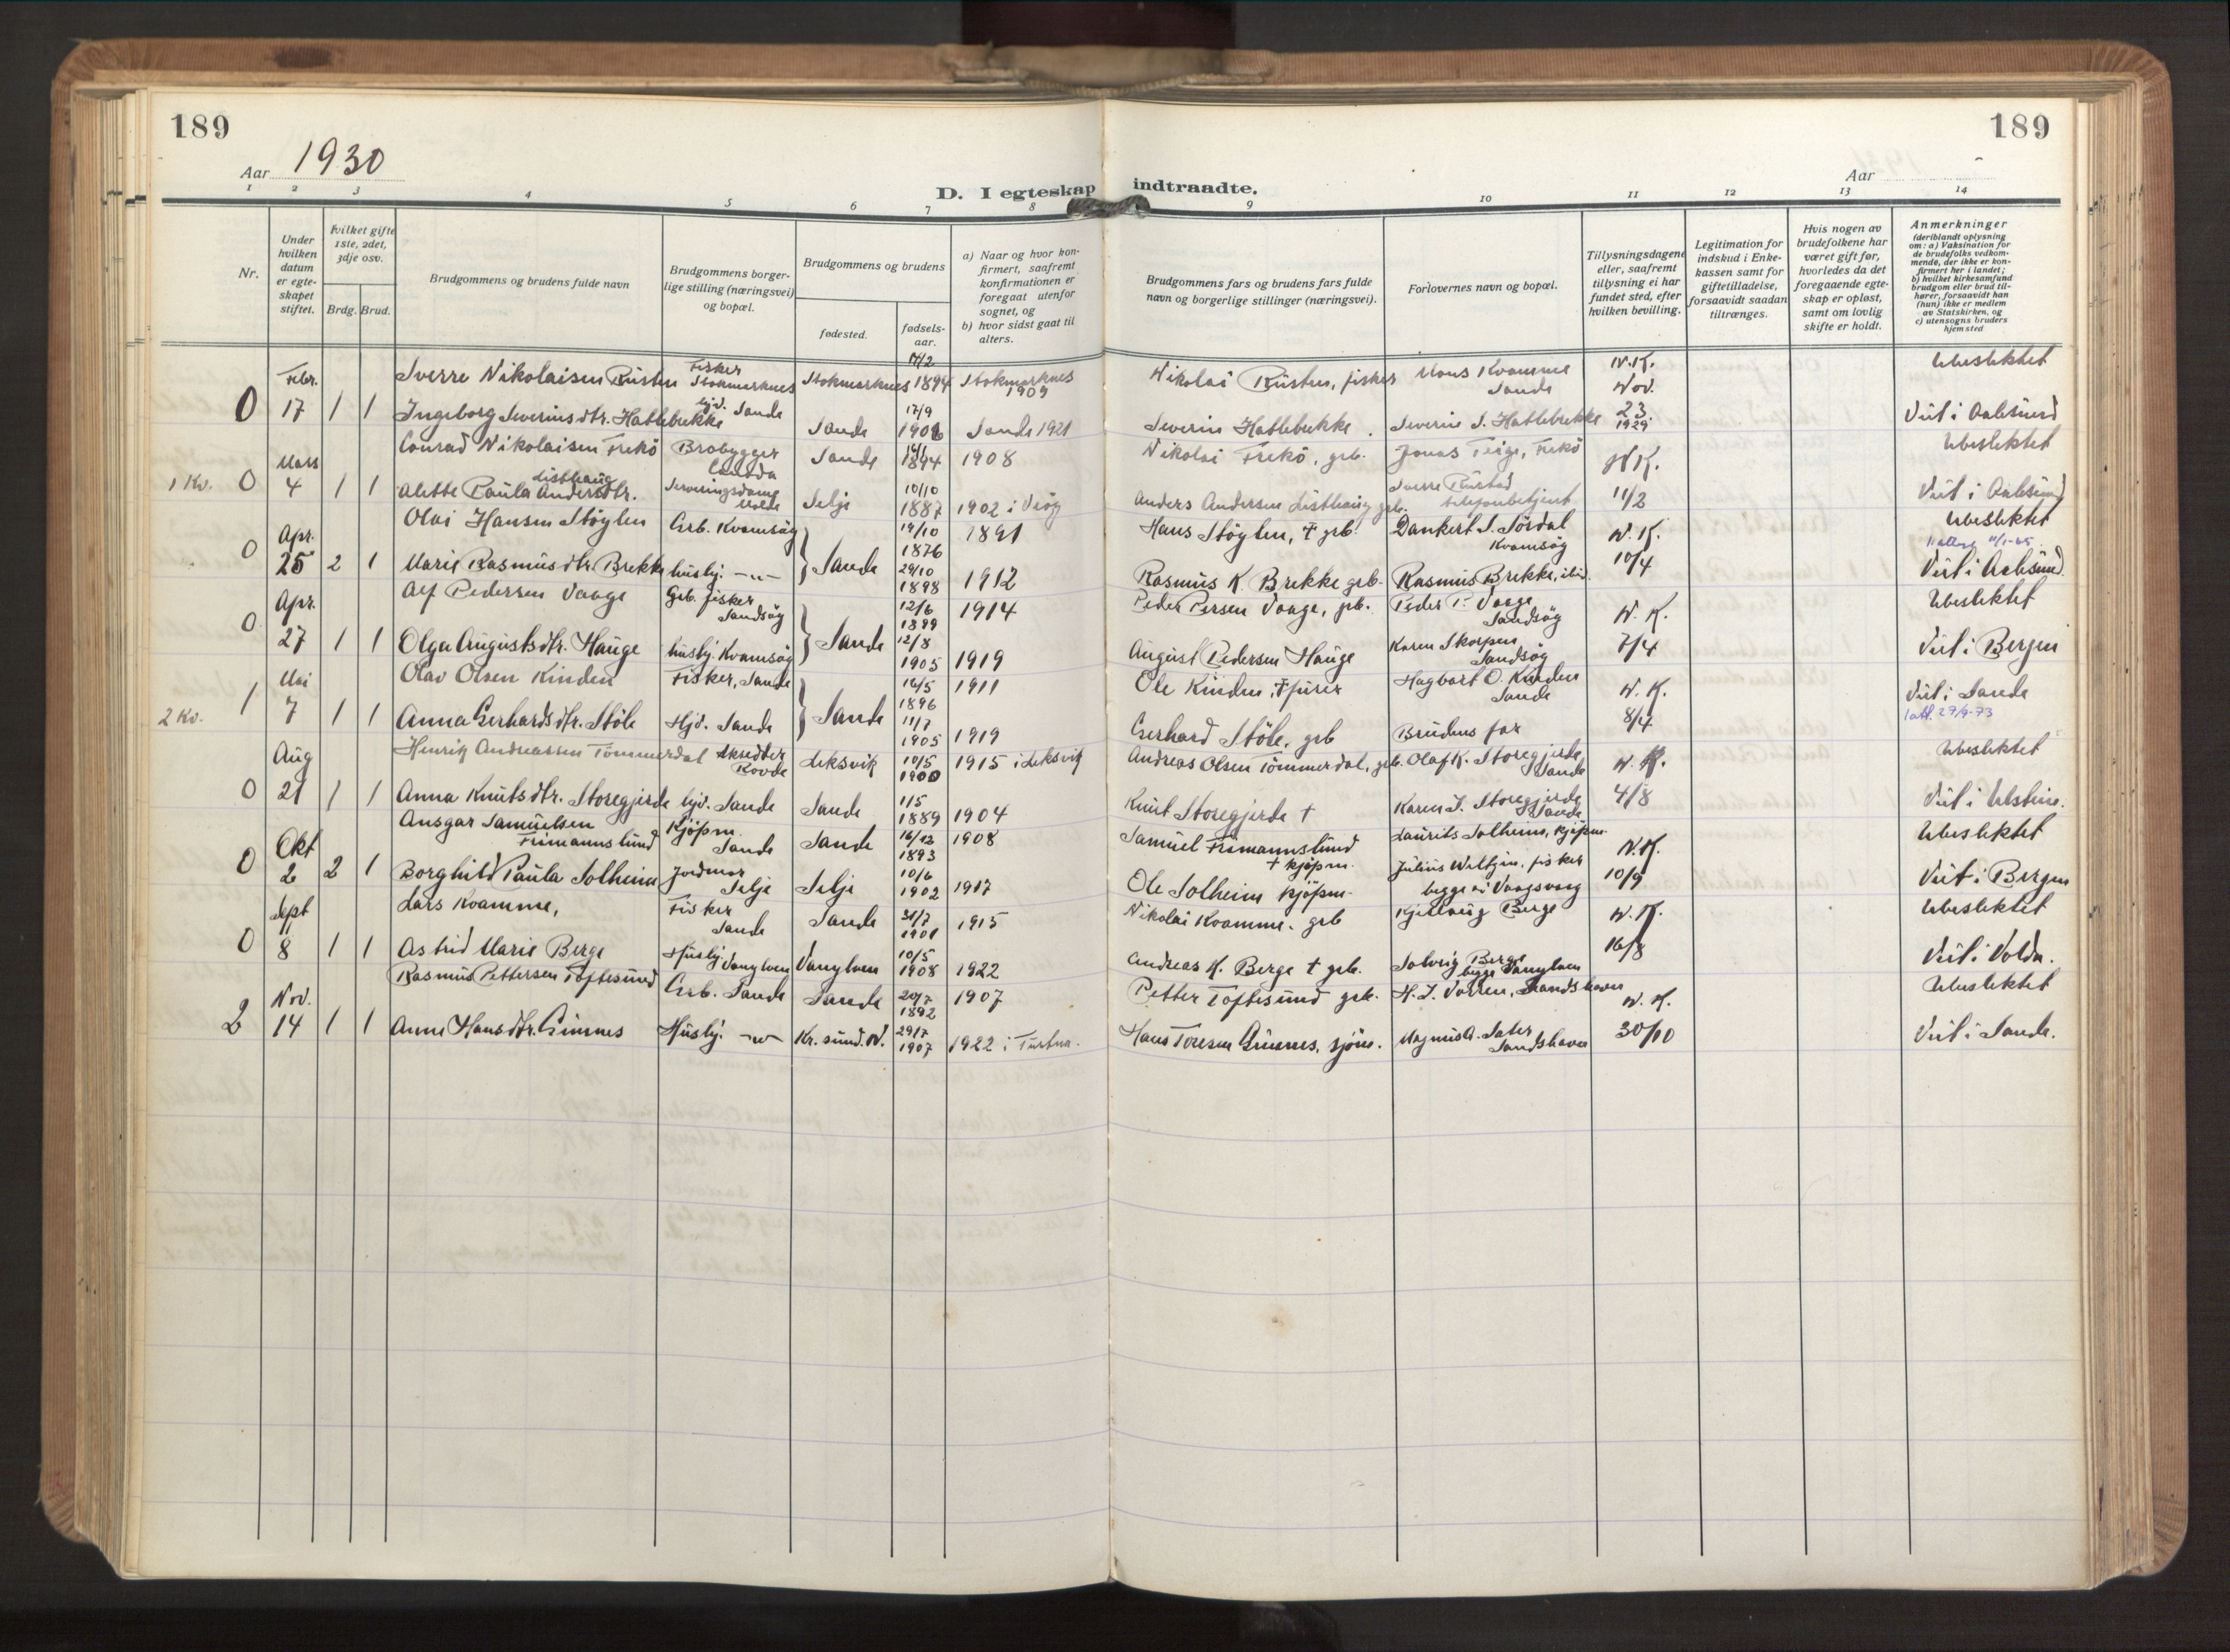 189
Aar 1930
D. I egteskap indtraadte.
189
Aar
1 2 3 4 5 6 7 8 9 10 11 12 13 14
Nr.
Under hvilken datum er egteskapet stiftet.
Hvilket gifte 1ste, 2det, 3dje osv.
Brdg. Brud.
Brudgommens og brudens fulde navn
Brudgommens borgerlige stilling (næringsvei) og bopæl.
Brudgommens og brudens
fødested.
fødselsaar.
a) Naar og hvor konfirmert, saafremt konfirmationen er foregaat utenfor sognet, og
b) hvor sidst gaat til alters.
Brudgommens fars og brudens fars fulde navn og borgerlige stillinger (næringsvei).
Forlovernes navn og bopæl.
Tillysningsdagene eller, saafremt tillysning ei har fundet sted, efter hvilken bevilling.
Legitimation for indskud i Enkekassen samt for giftetilladelse, forsaavidt saadan tiltrænges.
Hvis nogen av brudefolkene har været gift før, hvorledes da det foregaaende egteskap er opløst, samt om lovlig skifte er holdt.
Anmerkninger
(deriblandt oplysning om: a) Vaksination for de brudefolks vedkommende, der ikke er konfirmert her i landet; b) hvilket kirkesamfund brudgom eller brud tilhører, forsaavidt han (hun) ikke er medlem av Statskirken, og c) utensogns bruders hjemsted
Febr. Sverre Nikolaisen Fisker Stokmarknes Stokmarknes 14/2 1894 Stokmarknes 1909 Nikolai fisker Mons Kvamme Sande N.K. Nov. Ubeslektet
0 17 1 1 Ingeborg Severinsdtr. Hatlebrekke hjv. Sande Sande 17/9 Sande 1921 Severin Hatlebrekke Severin S. Hatlebrekke 23. 1929 Viet i Aalesund
Mars Conrad Nikolaisen Frekö Brobygger Sande 1894 1908 Nikolai Frekö, grb. Jonas Teige, Frekö N.K. Ubeslektet
1 Kv. 0 4 1 1 Alette Paula Andersdtr. Listhaug Serveringsdame Molde Selje 10/10 1887 1902 i Anders Andersen Listhaug grb. Sverre telefonbetjent 11/2 Viet i Aalesund
Apr. Olai Hansen Stöylen Grb. Kvamsöy 19/10 1876 1891 Hans Stöylen, † grb. Dankert S. Sördal Kvamsöy N.K. Ubeslektet
0 25 2 1 Marie Rasmusdtr. Brekke husbj. -"- } Sande 29/10 1898 1912 Rasmus K. Brekke grb. Rasmus Brekke, ibid. 10/4 Viet i Aalesund.
Apr. Alf Pedersen Vaage Grb. fisker Sandsöy 12/6 1899 1914 Peder Persen Vaage, grb. Peder P. Vaage Sandsöy N.K. Ubeslektet
0 27 1 1 Olga Augustsdtr. Hauge husbj. Kvamsöy } Sande 12/8 1905 1919 August Pedersen Hauge Karen Skorpen Sandsöy 7/4 Viet i Bergen
Mai Olav Olsen Kinden Fisker, Sande 16/5 1896 1911 Ole Kinden, † furer Hagbart O. Kinden Sande N.K. Viet i Sande
2 Kv. 1 7 1 1 Anna Gerhardsdtr. Stöle Hjv. Sande } Sande 11/7 1905 1919 Gerhard Stöle, grb Brudens far 8/4 27/9-73
Aug Henrik Andreassen Tömmerdal Skredder Rovde Leksvik 10/5 1900 1915 i Leksvik Andreas Olsen Tömmerdal, grb. Olaf K. Storegjerde Sande N.K. Ubeslektet
0 21 1 1 Anna Knutsdtr. Storegjerde hjv. Sande Sande 1/5 1889 1904 Knut Storegjerde † Karen J. Storegjerde Sande 4/8 Viet i Ulstein.
Okt Ansgar Samuelsen Frimannslund Kjöpm. Sande Sande 16/12 1893 1908 Samuel Frimannslund † kjöpm. Laurits Solheim, kjöpm. N.K. Ubeslektet
0 2 2 1 Borghild Paula Solheim Jordmor Selje Selje 10/6 1902 1917 Ole Solheim kjöpm. Julius fisker begge i Vaagsvaag 10/9 Viet i Bergen
Sept Lars Kvamme, Fisker Sande Sande 31/7 1901 1915 Nikolai Kvamme. grb Kjellaug Berge N.K. Ubeslektet
0 8 1 1 Astrid Marie Berge Husbj. Vanylven Vanylven 10/5 1908 1922 Andreas K. Berge † grb. Solveig Berge begge Vanylven 16/8 Viet i Volda.
Nov. Rasmus Pettersen Toftesund Grb. Sande Sande 20/7 1892 1907 Petter Toftesund grb. H. J. Vorren, Sandshavn N.K. Ubeslektet
2 14 1 1 Anna Hansdtr. Gimnes Husbj. -"- Kr. sund. N. 29/7 1907 1922 i Tustna. Hans Toresen Gimnes, sjöm. Magnus A. Sæter Sandshavn 30/10 Viet i Sande.